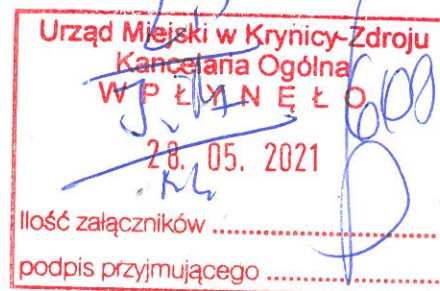 Urząd Miejski w Krynicy-Zdroju
Kancelaria Ogólna
WPŁYNĘŁO
28. 05. 2021
Ilość załączników ........................
podpis przyjmującego ........................